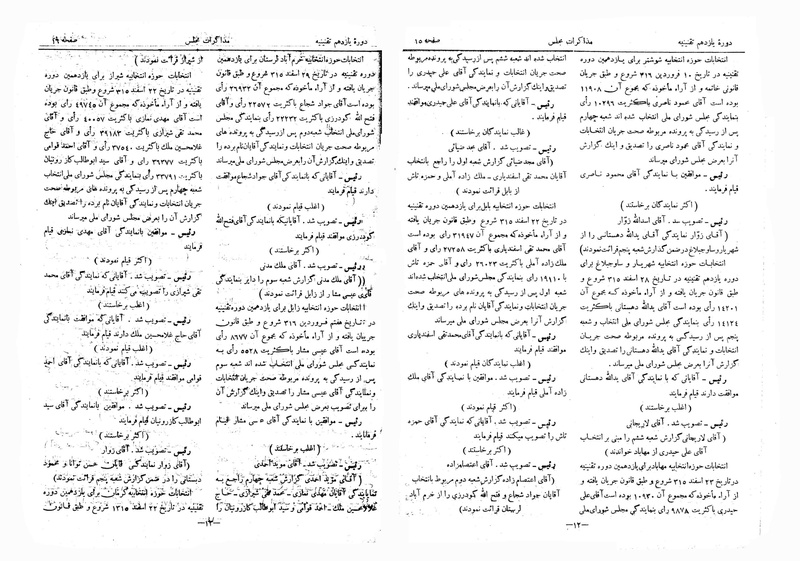 دورهٔ یازدهم تقنینیه
مذاکرات مجلس
صفحه ۱۵
انتخابات حوزه انتخابیه شوشتر برای یازدهمین دوره
تقنینیه در تاریخ ۱۰ فروردین ۳۱۶ شروع و طبق جریان
قانونی خاتمه و از آراء مأخوذه که مجموع آن ۱۱۹۰۸
بوده است آقای محمود ناصری باکثریت ۱۰۲۹۶ رای
بنمایندگی مجلس شورای ملی انتخاب شده اند شعبه چهارم
پس از رسیدگی به پرونده مربوطه صحت جریان انتخابات
و نمایندگی آقای محمود ناصری را تصدیق و اینک گزارش
آنرا بعرض مجلس شورای ملی میرساند
رئیس ـ موافقین با نمایندگی آقای محمود ناصری
قیام فرمایند
(اکثر نمایندگان برخاستند)
رئیس ـ تصویب شد. آقای اسدالله زوار
(آقای زوار نمایندگی آقای یدالله دهستانی را از
شهریار و ساوجبلاغ در ضمن گذارش شعبه پنجم قرائت نمودند)
انتخابات حوزه انتخابیه شهریار و ساوجبلاغ برای
یازدهمین دوره تقنینیه در تاریخ ۲۸ اسفند ۳۱۵ شروع و
طبق قانون جریان یافته و از آراء مأخوذه که مجموع آن
۱۴۲۰۱ بوده است آقای یدالله دهستانی باکثریت
۱۴۱۲۴ رأی بنمایندگی مجلس شورای ملی انتخاب و شعبه
پنجم پس از رسیدگی به پرونده مربوطه صحت جریان
انتخابات و نمایندگی آقای یدالله دهستانی را تصدیق و اینک
گزارش آنرا بعرض مجلس شورای ملی میرساند.
رئیس ـ آقایانی که با نمایندگی آقای یدالله دهستانی
موافقت دارند قیام فرمایند
(اکثر برخاستند)
رئیس ـ تصویب شد. آقای لاریجانی
(آقای لاریجانی گزارش شعبه ششم را مبنی بر انتخاب
آقای علی حیدری از مهاباد خواندند)
انتخابات حوزه انتخابیه مهاباد برای یازدهمین دوره تقنینیه
در تاریخ ۲۲ اسفند ۳۱۵ شروع و طبق قانون جریان یافته و
از آراء مأخوذه که مجموع آن ۱۰۹۳۰ بوده است آقای علی
حیدری باکثریت ۹۸۷۸ رای بنمایندگی مجلس شورای ملی
انتخاب شده اند شعبه ششم پس از رسیدگی به پرونده مربوطه
صحت جریان انتخابات و نمایندگی آقای علی حیدری را
تصدیق و اینک گزارش آن بعرض مجلس شورای ملی میرساند.
رئیس ـ آقایانی که بانمایندگی آقای علی حیدری موافقند
قیام فرمایند.
(غالب نمایندگان برخاستند)
رئیس ـ تصویب شد. آقای مجد ضیائی
(آقای مجد ضیائی گزارش شعبه اول را راجع بانتخاب
آقایان محمد تقی اسفندیاری ـ ملک زاده آملی و حمزه تاش
از بابل قرائت نمودند)
انتخابات حوزه انتخابیه بابل برای یازدهمین دوره تقنینیه
در تاریخ ۲۲ اسفند ۳۱۵ شروع و طبق قانون جریان یافته
و از آراء مأخوذه که مجموع آن ۳۱۹۴۷ بوده است
آقای محمد تقی اسفندیاری باکثریت ۲۷۲۵۸ رای و آقای
ملک زاده آملی باکثریت ۲۹۰۲۳ رای و آقای حمزه تاش
با ۱۹۱۱۰ رای بنمایندگی مجلس شورای ملی انتخاب شده اند
شعبه اول پس از رسیدگی به پرونده های مربوطه صحت
جریان انتخابات و نمایندگی آقایان نام برده را تصدیق و اینک
گزارش آنرا بعرض مجلس شورای ملی میرساند
رئیس ـ آقایانی که بانمایندگی آقای محمدتقی اسفندیاری
موافقند قیام فرمایند
(اغلب نمایندگان قیام نمودند)
رئیس ـ تصویب شد. موافقین با نمایندگی آقای ملک
زاده آملی قیام فرمایند
(اکثر قیام نمودند)
رئیس ـ تصویب شد. آقایانی که نمایندگی آقای حمزه
تاش را تصویب میکنند قیام فرمایند
(اکثر برخاستند)
رئیس ـ تصویب شد. آقای اعتصامزاده
(آقای اعتصام زاده گزارش شعبه دوم مربوط بانتخاب
آقایان جواد شجاع و فتح الله گودرزی را از خرم آباد
لرستان قرائت نمودند)
ـ۱۲ـ
دورهٔ یازدهم تقنینیه
مذاکرات مجلس
صفحه ۱۶
انتخابات حوزه انتخابیه خرم آباد لرستان برای یازدهمین
دوره تقنینیه در تاریخ ۲۹ اسفند ۳۱۵ شروع و طبق قانون
جریان یافته و از آراء مأخوذه که مجموع آن ۲۶۹۳۲
بوده است آقای جواد شجاع باکثریت ۲۲۵۷۲ رأی و آقای
فتح الله گودرزی باکثریت ۲۲۲۳۲ رأی بنمایندگی مجلس
شورای ملی انتخاب شعبه دوم پس از رسیدگی به پرونده های
مربوطه صحت جریان انتخابات و نمایندگی آقایان نام برده را
تصدیق و اینک گزارش آن را بعرض مجلس شورای ملی میرساند.
رئیس ـ آقایانی که بانمایندگی آقای جواد شجاع موافقت
دارند قیام فرمایند
(اغلب قیام نمودند)
رئیس ـ تصویب شد. آقایانیکه بانمایندگی آقای فتح الله
گودرزی موافقند قیام فرمایند
(اکثر برخاستند)
رئیس ـ تصویب شد. آقای ملک مدنی
(آقای ملک مدنی گزارش شعبه سوم را دایر بنمایندگی
آقای عیسی مشار از زابل قرائت نمودند)
انتخابات حوزه انتخابیه زابل برای یازدهمین دوره تقنینیه
در تاریخ هفتم فروردین ۳۱۶ شروع و طبق قانون
جریان یافته و از آراء مأخوذه که مجموع آن ۸۹۷۷ رأی
بوده است آقای عیسی مشار باکثریت ۵۵۲۸ رأی به
نمایندگی مجلس شورای ملی انتخاب شده اند شعبه سوم
پس از رسیدگی به پرونده مربوطه صحت جریان انتخابات
و نمایندگی آقای عیسی مشار را تصدیق و اینک گزارش آن
را برای تصویب بعرض مجلس شورای ملی میرساند
رئیس ـ موافقین با نمایندگی آقای عیسی مشار قیام
فرمایند.
(اغلب برخاستند)
رئیس ـ تصویب شد. آقای مؤید احمدی
(آقای مؤید احمدی گزارش شعبه چهارم راجع به
نمایندگی آقایان مهدی نمازی ـ محمد تقی شیرازی ـ حاج
غلامحسین ملک ـ احمد قوامی و سید ابوطالب کازرونیان را
از شیراز قرائت نمودند)
انتخابات حوزه انتخابیه شیراز برای یازدهمین دوره
تقنینیه در تاریخ ۲۲ اسفند ۳۱۵ شروع و طبق قانون جریان
یافته و از آراء مأخوذه که مجموع آن ۴۹۷۴۵ رأی بوده
است آقای مهدی نمازی باکثریت ۴۰۰۵۷ رأی و آقای
محمد تقی شیرازی باکثریت ۳۹۱۸۳ رأی و آقای حاج
غلامحسین ملک باکثریت ۳۷۵۴۰ رای و آقای احمد قوامی
باکثریت ۳۹۳۷۷ رای و آقای سید ابوطالب کازرونیان
باکثریت ۳۳۷۹۱ رأی بنمایندگی مجلس شورای ملی انتخاب
شعبه چهارم پس از رسیدگی به پرونده های مربوطه صحت
جریان انتخابات و نمایندگی آقایان نام برده را تصدیق و اینک
گزارش آن را بعرض مجلس شورای ملی میرساند
رئیس ـ موافقین بانمایندگی آقای مهدی نمازی قیام
فرمایند
(اکثر قیام نمودند)
رئیس ـ تصویب شد. آقایانی که نمایندگی آقای محمد
تقی شیرازی را تصویب می کنند قیام فرمایند
(اغلب برخاستند)
رئیس ـ تصویب شد. آقایانی که موافقت بانمایندگی
آقای حاج غلامحسین ملک دارند قیام فرمایند
(اغلب قیام نمودند)
رئیس ـ تصویب شد. آقایانی که بانمایندگی آقای احمد
قوامی موافقند قیام فرمایند
(اکثر برخاستند)
رئیس ـ تصویب شد. موافقین بانمایندگی آقای سید
ابوطالب کازرونیان قیام فرمایند
(اکثر برخاستند)
رئیس ـ تصویب شد. آقای زوار
(آقای زوار نمایندگی آقایان حسن توانا و محمود
دبستانی را در ضمن گزارش شعبه پنجم قرائت نمودند)
انتخابات حوزه انتخابیه کرمان برای یازدهمین دوره
تقنینیه در تاریخ ۲۲ اسفند ۱۳۱۵ شروع و طبق قانون
ـ۱۳ـ